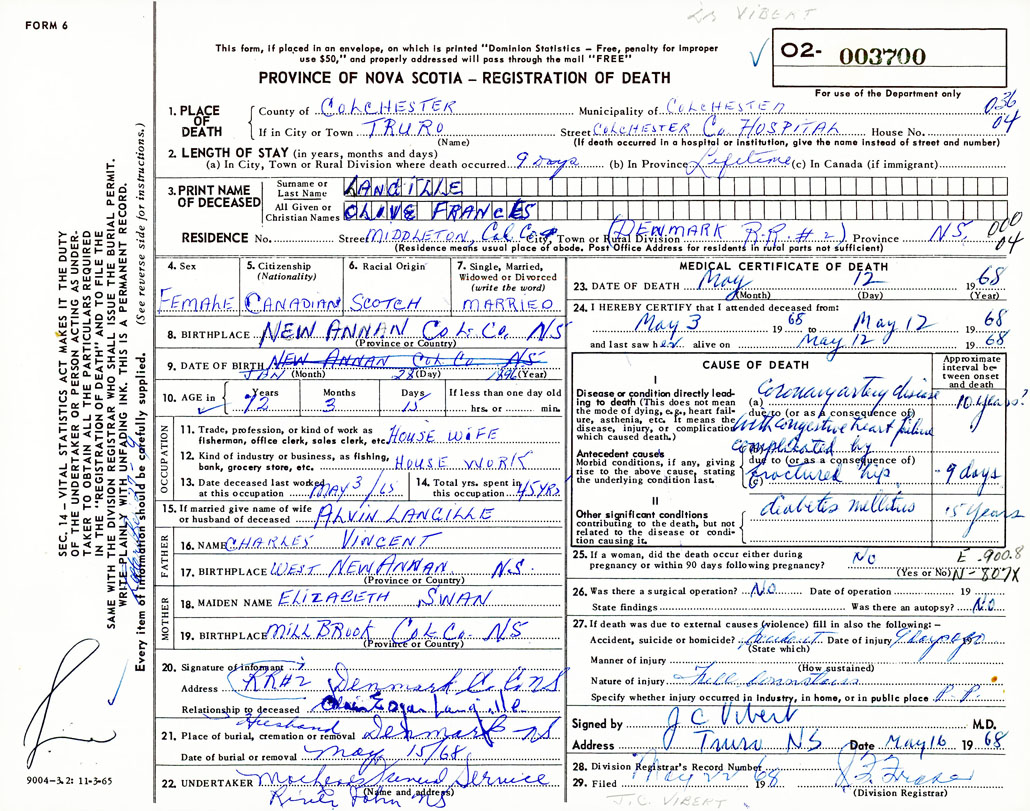 FORM 6
Dr VIBERT
This form, if placed in an envelope, on which is printed "Dominion Statistics – Free, penalty for improper
use $50," and properly addressed will pass through the mail "FREE"
PROVINCE OF NOVA SCOTIA – REGISTRATION OF DEATH
02- 003700
For use of the Department only
036
04
1. PLACE OF DEATH
County of COLCHESTER Municipality of COLCHESTER
If in City or Town TRURO Street COLCHESTER Co. HOSPITAL House No.
(Name) (If death occurred in a hospital or institution, give the name instead of street and number)
2. LENGTH OF STAY (in years, months and days)
(a) In City, Town or Rural Division where death occurred 9 days (b) In Province Lifetime (c) In Canada (if immigrant)
3. PRINT NAME OF DECEASED
Surname or Last Name LANGILLE
All Given or Christian Names OLIVE FRANCES
RESIDENCE No. Street MIDDLETON, Col. Co. City, Town or Rural Division (DENMARK R.R.#2) Province NS.
000
04
(Residence means usual place of abode. Post Office Address for residents in rural parts not sufficient)
4. Sex FEMALE
5. Citizenship (Nationality) CANADIAN
6. Racial Origin SCOTCH
7. Single, Married, Widowed or Divorced (write the word) MARRIED
8. BIRTHPLACE NEW ANNAN Col. Co. NS
(Province or Country)
9. DATE OF BIRTH NEW ANNAN Col. Co. NS
JAN (Month) 28 (Day) 1896 (Year)
10. AGE in Years 72 Months 3 Days 15 If less than one day old hrs. or min.
OCCUPATION
11. Trade, profession, or kind of work as fisherman, office clerk, sales clerk, etc. HOUSE WIFE
12. Kind of industry or business, as fishing, bank, grocery store, etc. HOUSE WORK
13. Date deceased last worked at this occupation MAY 3/65
14. Total yrs. spent in this occupation 45 YRS
15. If married give name of wife or husband of deceased ALVIN LANGILLE
FATHER
16. NAME CHARLES VINCENT
17. BIRTHPLACE WEST NEW ANNAN NS.
(Province or Country)
MOTHER
18. MAIDEN NAME ELIZABETH SWAN
19. BIRTHPLACE MILLBROOK Col. Co. NS
(Province or Country)
20. Signature of informant
Address RR#2 Denmark Col Co NS
Relationship to deceased Langille
Husband
21. Place of burial, cremation or removal Denmark NS
Date of burial or removal May 15/68
22. UNDERTAKER Service
(Name and address) River John NS
MEDICAL CERTIFICATE OF DEATH
23. DATE OF DEATH May 12 19 68
(Month) (Day) (Year)
24. I HEREBY CERTIFY that I attended deceased from:
May 3 19 68 to May 12 19 68
and last saw her alive on May 12 19 68
CAUSE OF DEATH
Approximate interval between onset and death
I
Disease or condition directly leading to death (This does not mean the mode of dying, e.g., heart failure, asthenia, etc. It means the disease, injury, or complication which caused death.)
(a) Coronary artery disease 10 years?
due to (or as a consequence of)
with congestive heart failure
Antecedent causes
Morbid conditions, if any, giving rise to the above cause, stating the underlying condition last.
complicated by
due to (or as a consequence of)
(c) fractured hip 9 days
II
Other significant conditions contributing to the death, but not related to the disease or condition causing it.
diabetes mellitus 15 years
25. If a woman, did the death occur either during pregnancy or within 90 days following pregnancy? No
(Yes or No)
E-900.8
N-807X
26. Was there a surgical operation? No. Date of operation 19
State findings Was there an autopsy? No
27. If death was due to external causes (violence) fill in also the following:–
Accident, suicide or homicide? Accident Date of injury 9 days ago 19
(State which)
Manner of injury
(How sustained)
Nature of injury Fell downstairs
Specify whether injury occurred in industry, in home, or in public place
Signed by J C Vibert M.D.
Address Truro NS Date May 16 1968
28. Division Registrar's Record Number
29. Filed May 22 1968
(Division Registrar)
J.C. VIBERT
SEC. 14 – VITAL STATISTICS ACT MAKES IT THE DUTY
OF THE UNDERTAKER OR PERSON ACTING AS UNDER-
TAKER TO OBTAIN ALL THE PARTICULARS REQUIRED
IN THE "REGISTRATION OF DEATH" AND TO FILE THE
SAME WITH THE DIVISION REGISTRAR WHO SHALL ISSUE THE BURIAL PERMIT.
WRITE PLAINLY WITH UNFADING INK. THIS IS A PERMANENT RECORD.
Every item of information should be carefully supplied. (See reverse side for instructions.)
9004-3.2: 11-3-65